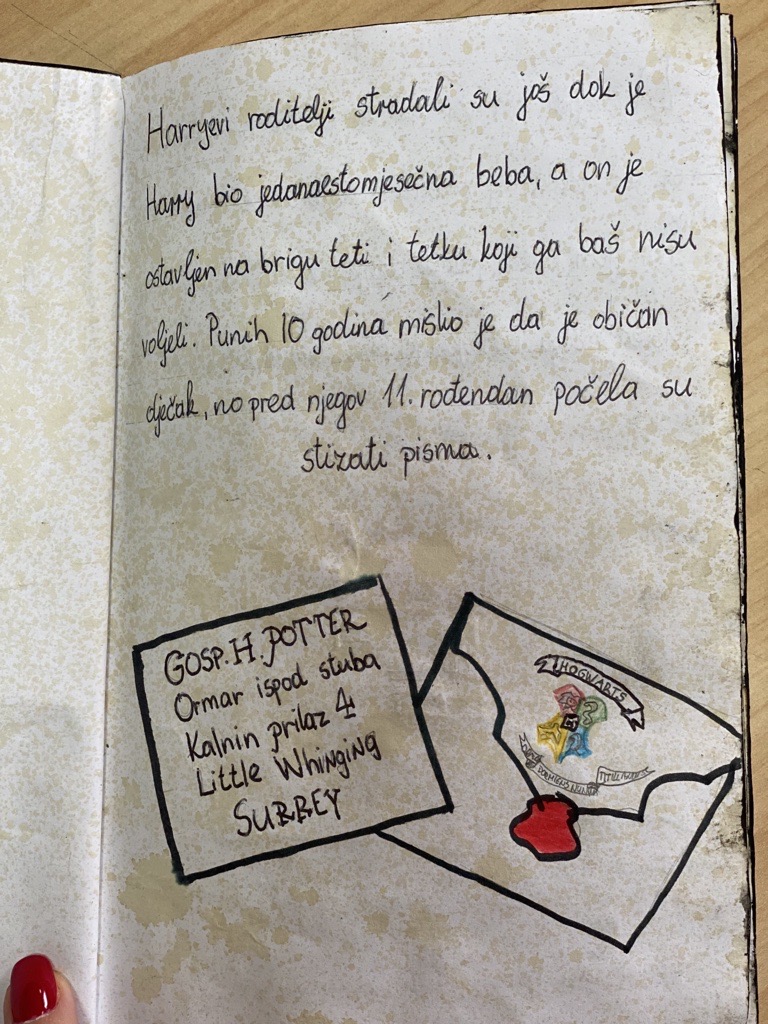 Harryevi roditelji stradali su još dok je
Harry bio jedanaestomjesečna beba, a on je
ostavljen na brigu teti i tetku koji ga baš nisu
voljeli. Punih 10 godina mislio je da je običan
dječak, no pred njegov 11. rođendan počela su
stizati pisma.
GOSP. H. POTTER
Ormar ispod stuba
Kalnin prilaz 4
Little Whinging
SURREY
HOGWARTS